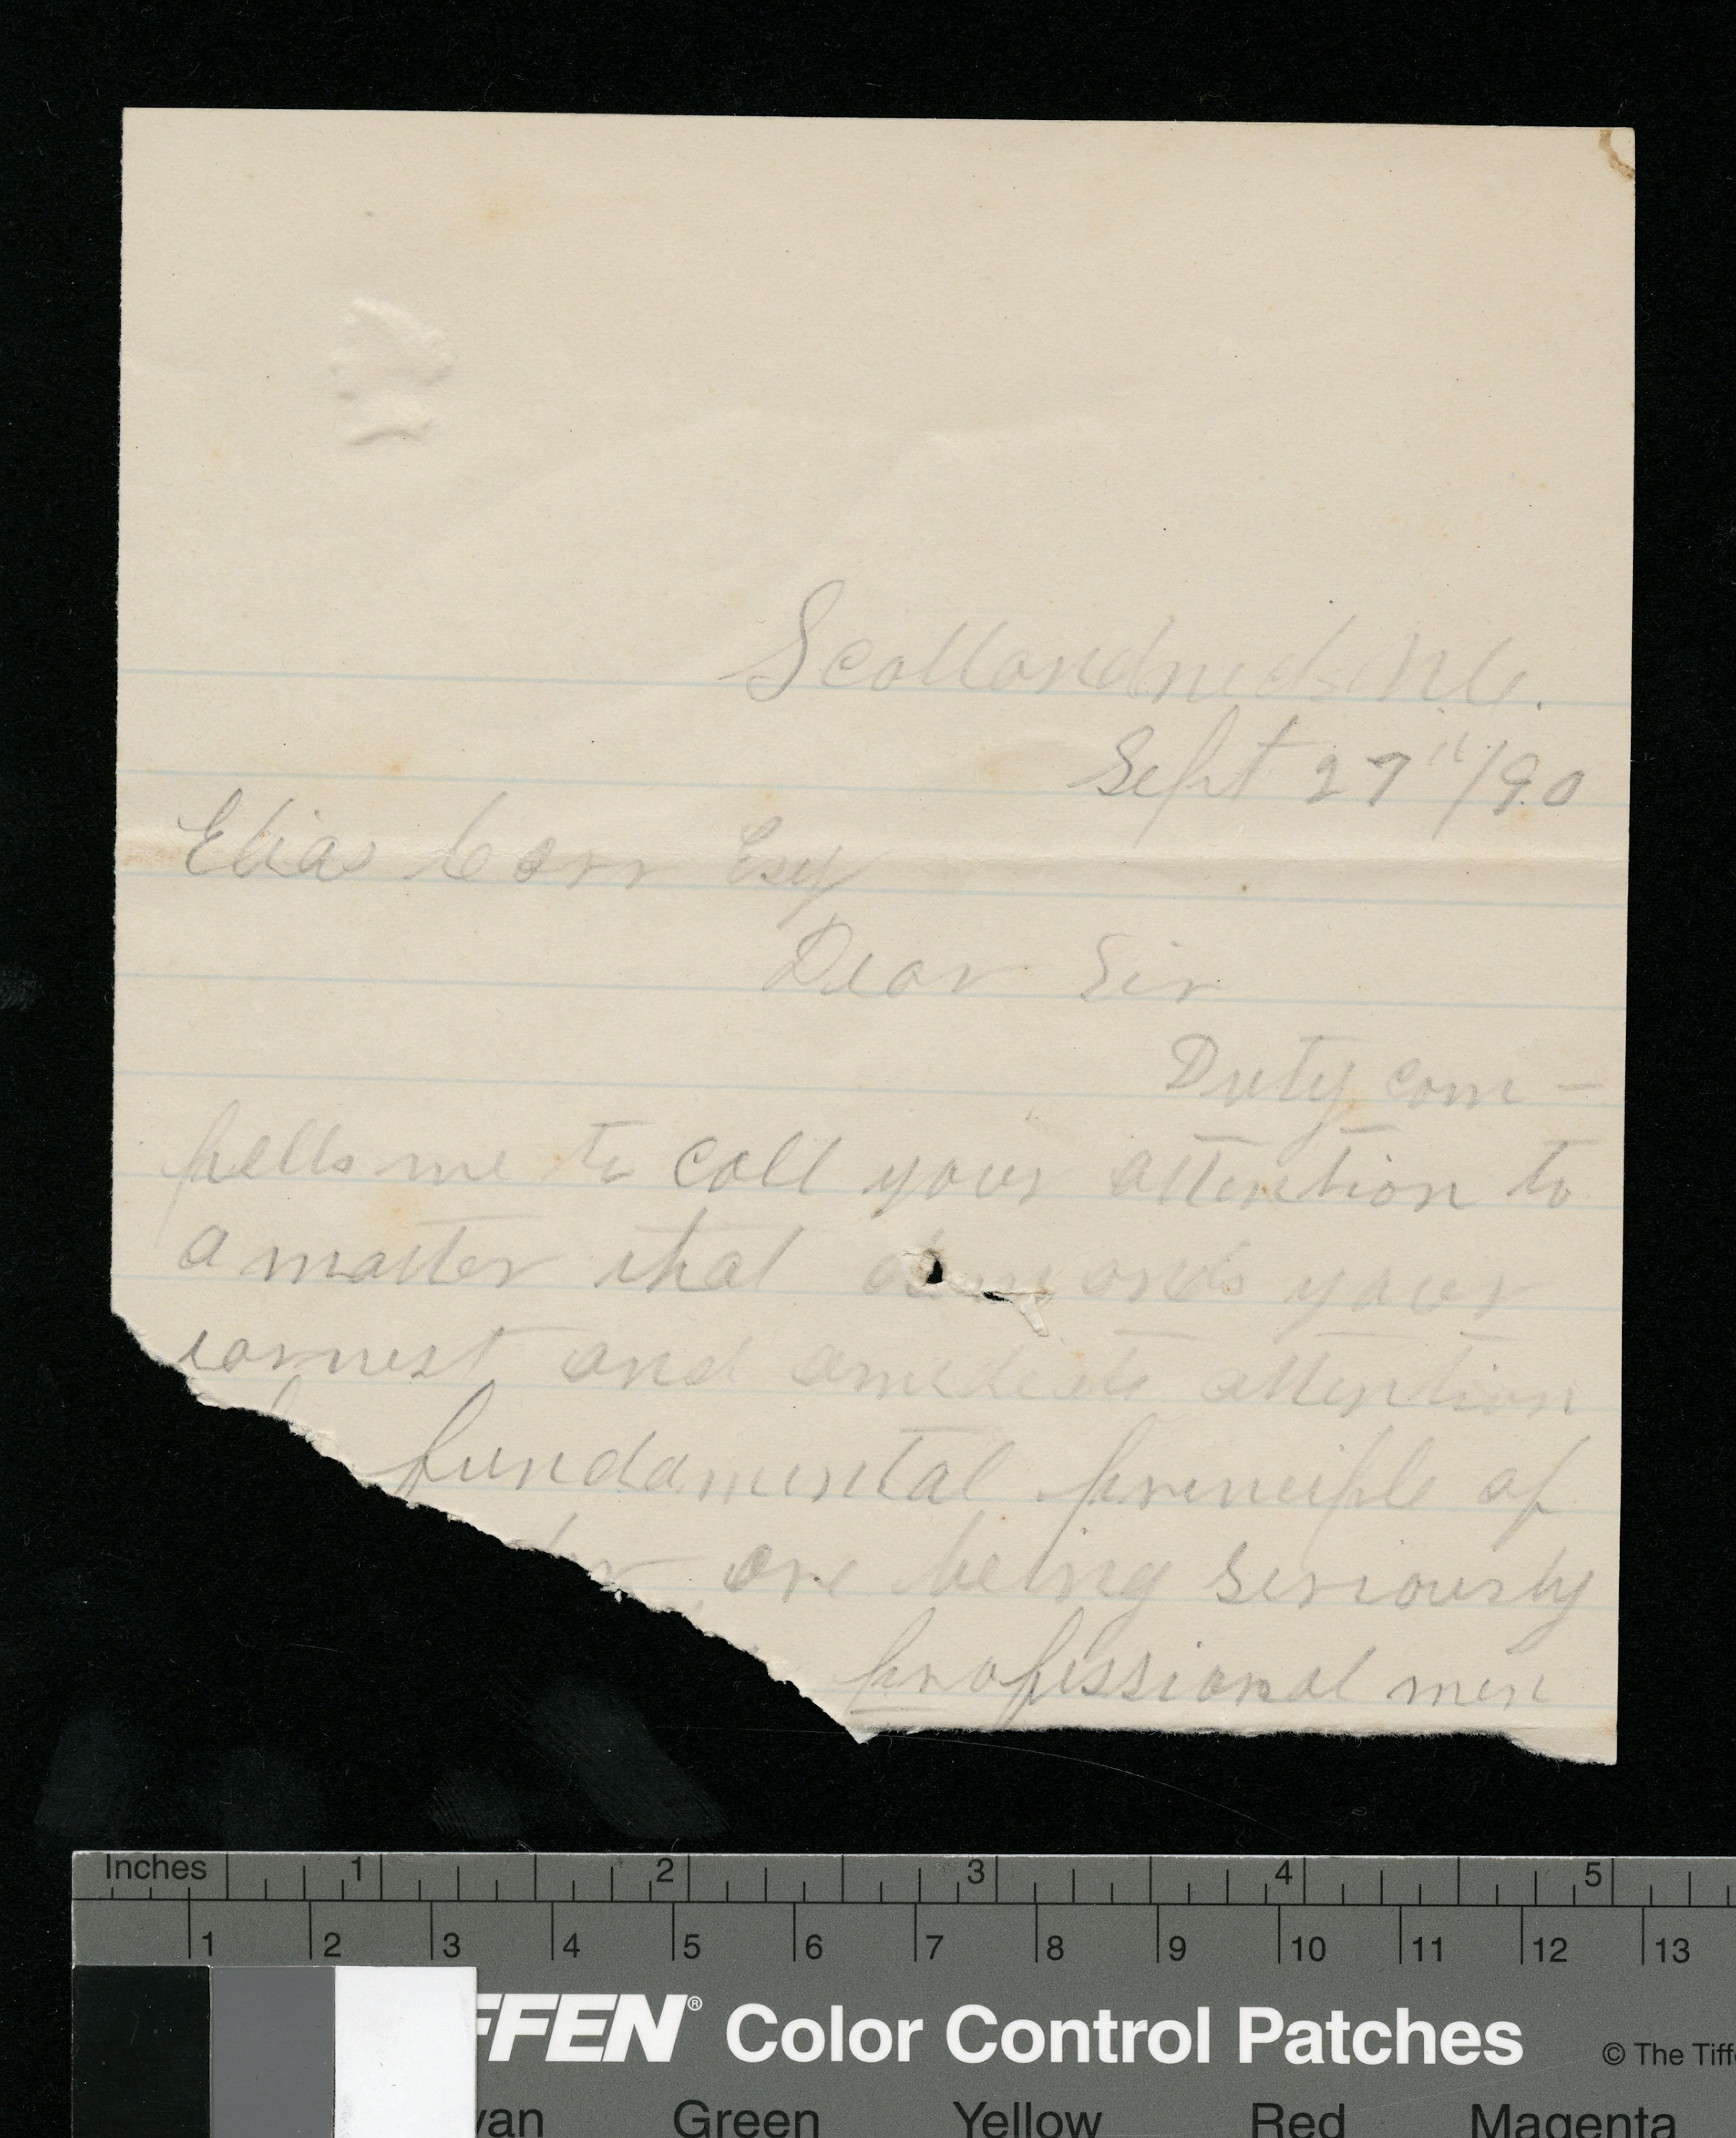 Scotlandneck N.C.
Sept 27th/90
Elias Carr Esq
Dear Sir
Duty com-
pells me to call your attention to
a matter that demands your
earnest and amediate attention
fundamental principle of
are being seriously
professional men
Inches 1 2 3 4 5
1 2 3 4 5 6 7 8 9 10 11 12 13
FFEN® Color Control Patches © The Tiffe
yan Green Yellow Red Magenta